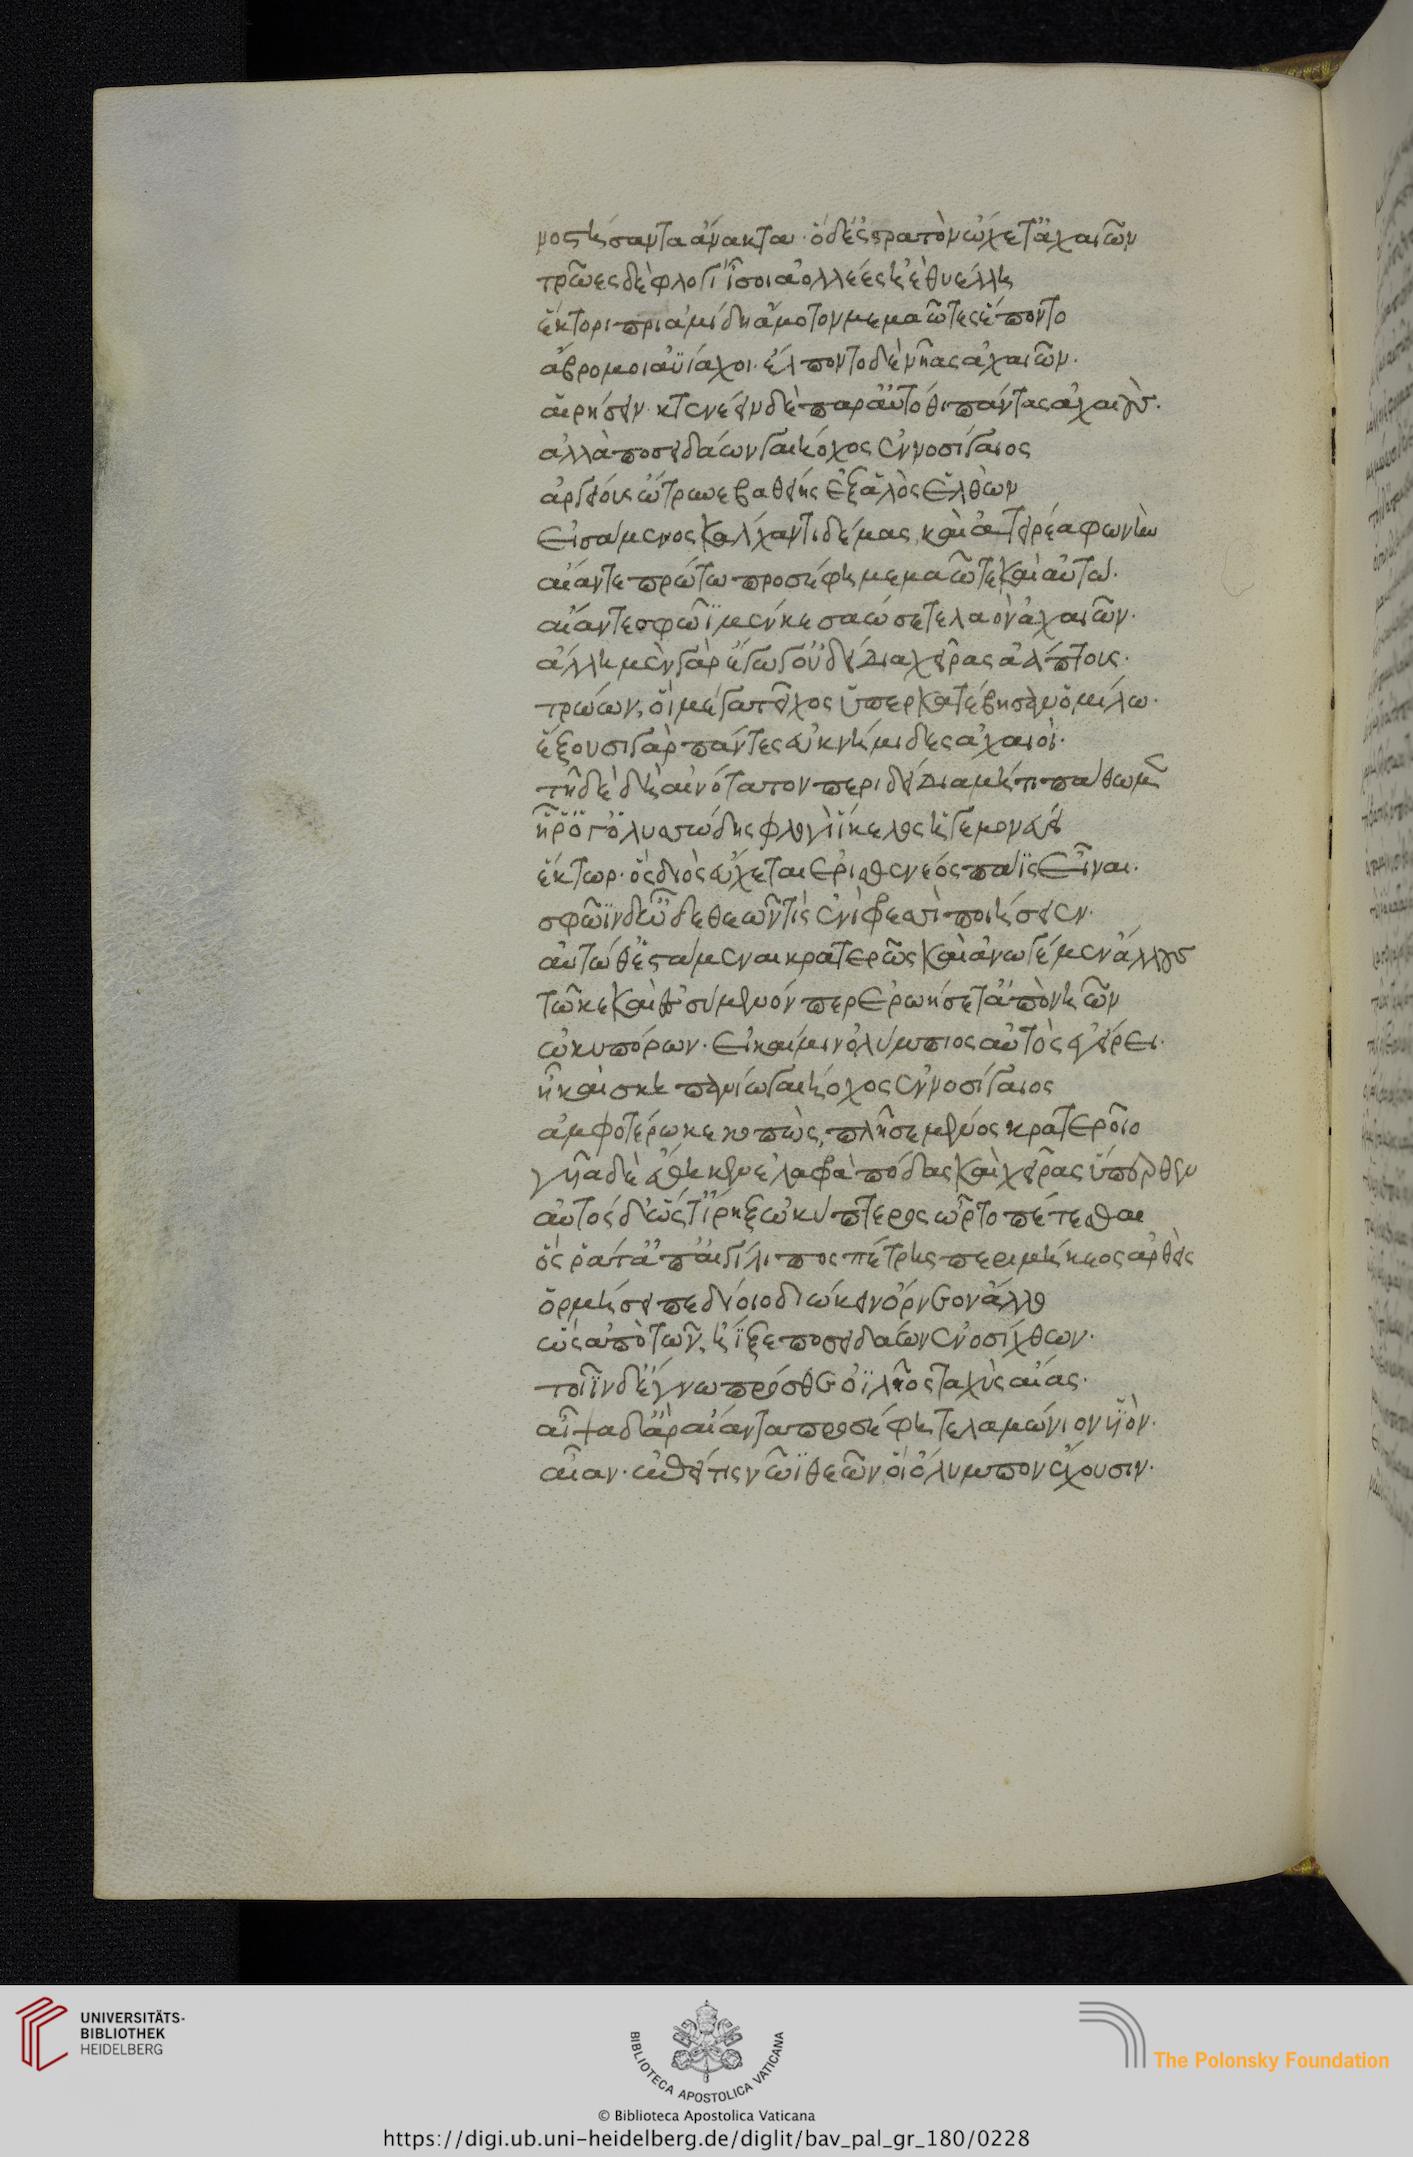 νοστήσαντα ἄνακτα· ὃ δ' ἐς στρατὸν ᾤχετ' ἀχαιῶν
τρῶες δὲ φλογὶ ἶσοι ἀολλέες ἠὲ θυέλλη
ἕκτορι πριαμίδη ἄμοτον μεμαῶτες ἕποντο
ἄβρομοι αὐΐαχοι· ἔλποντο δὲ νῆας ἀχαιῶν·
αἱρήσειν· κτενέειν δὲ παρ' αὐτόθι πάντας ἀχαιούς·
ἀλλὰ ποσειδάων γαιήοχος ἐννοσίγαιος
ἀργείους ὤτρυνε βαθείης ἐξ ἁλὸς ἐλθὼν
εἰσάμενος κάλχαντι δέμας, καὶ ἀτειρέα φωνὴν
αἴαντε πρώτω προσέφη μεμαῶτε καὶ αὐτώ·
αἴαντε σφῶϊ μέν κε σαώσετε λαὸν ἀχαιῶν·
ἄλλη μὲν γὰρ ἔγωγ' οὐ δείδια χεῖρας ἀάπτους·
τρώων, οἳ μέγα τεῖχος ὑπερκατέβησαν ὁμίλω·
ἕξουσι γὰρ πάντες εὐκνήμιδες ἀχαιοί·
τῆ δὲ δὴ αἰνότατον περιδείδια μή τι πάθωμεν
ἧ ῥ' ὅ γ' ὁ λυσσώδης φλογὶ εἴκελος ἡγεμονεύει
ἕκτωρ· ὃς διὸς εὔχεται ἐρισθενέος πάϊς εἶναι·
σφῶϊν δ' ὧδε θεῶν τὶς ἐνὶ φρεσὶ ποιήσειεν·
αὐτώ θ' ἑστάμεναι κρατερῶς καὶ ἀνωγέμεν ἄλλους
τῶ κε καὶ ἐσσύμενόν περ ἐρωήσετ' ἀπὸ νηῶν
ὠκυπόρων· εἰ καί μιν ὀλύμπιος αὐτὸς ἐγείρει·
ἦ καὶ σκηπανίω γαιήοχος ἐννοσίγαιος
ἀμφοτέρω κεκοπὼς, πλῆσε μένεος κρατεροῖο
γυῖα δ' ἔθηκεν ἐλαφρὰ πόδας καὶ χεῖρας ὕπερθεν
αὐτὸς δ' ὥς τ' ἴρηξ ὠκύπτερος ὦρτο πέτεσθαι
ὅς ῥά τ' ἀπ' αἰγίλιπος πέτρης περιμήκεος ἀρθεὶς
ὁρμήσει πεδίοιο διώκειν ὄρνεον ἄλλο
ὣς ἀπὸ τῶν, ἤϊξε ποσειδάων ἐνοσίχθων·
τοῖϊν δ' ἔγνω πρόσθεν ὀϊλῆος ταχὺς αἴας·
αἶψα δ' ἄρ' αἴαντα προσέφη τελαμώνιον υἱόν·
αἶαν· ἐπεί τις νῶϊ θεῶν, οἳ ὄλυμπον ἔχουσιν·
UNIVERSITÄTS-
BIBLIOTHEK
HEIDELBERG
BIBLIOTECA APOSTOLICA VATICANA
The Polonsky Foundation
© Biblioteca Apostolica Vaticana
https://digi.ub.uni-heidelberg.de/diglit/bav_pal_gr_180/0228